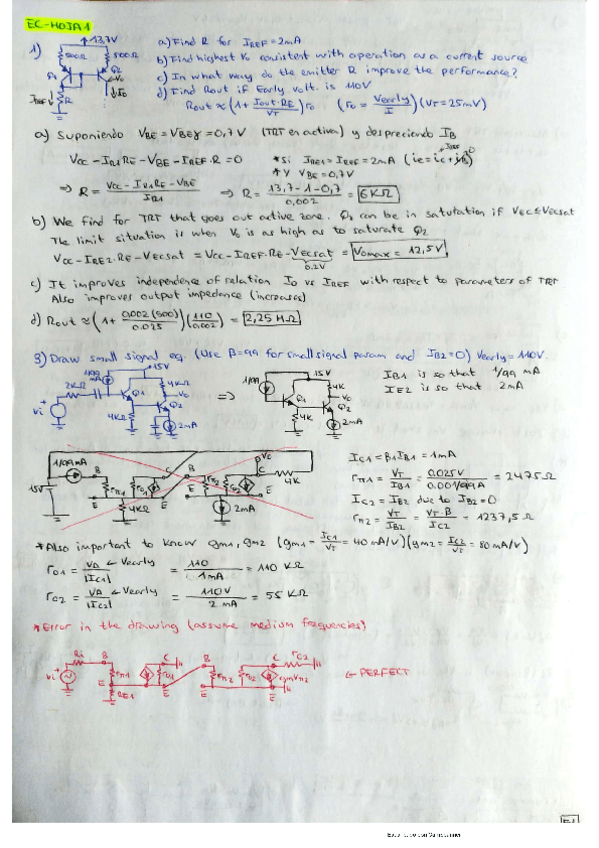 EC-HOJA1
1)
13,7V
500Ω
500Ω
Q1
Q2
Vo
Io
IREF
R
a) Find R for IREF=2mA
b) Find highest Vo consistent with operation as a current source
c) In what way do the emitter R improve the performance?
d) Find Rout if Early volt. is 110V
Rout ≈ (1+ Iout·RE/VT) ro (ro = Vearly/I) (VT=25mV)
a) Suponiendo VBE = VBEγ = 0,7V (TRT en activa) y despreciendo IB
VCC - IR1RE - VBE - IREF·R = 0 * Si IRE1 = IREF = 2mA (ie = ic + iB)
* Y VBE = 0.7V
⇒ R = VCC - IR1RE - VBE / IR1 ⇒ R = 13,7-1-0,7 / 0,002 = 6KΩ
b) We find for TRT that goes out active zone. Q2 can be in saturation if VEC≤VECsat
The limit situation is when Vo is as high as to saturate Q2
VCC - IRE2·RE - VECsat = VCC - IREF·RE - VECsat = Vomax = 12,5V
0.2V
c) It improves independence of relation Io vs IREF with respect to parameters of TRT
Also improves output impedance (increases)
d) Rout ≈ (1+ 0.002(500)/0.025) (110/0,002) = 2,25 MΩ
3) Draw small signal eq. (Use β=99 for small signal param and IB2=0) Vearly=110V.
1/99 mA
15V
2KΩ
4KΩ
Q1
Vo
Q2
vi
4KΩ
2mA
⇒
1/99
15V
4K
Vo
Q1
Q2
4K
2mA
IB1 is so that 1/99 mA
IE2 is so that 2mA
1/99mA
B
C
B
C
Vc
15V
rπ1
ro1
rπ2
ro2
4K
E
E
E
E
4KΩ
2mA
IC1 = β1IB1 = 1mA
rπ1 = VT/IB1 = 0.025V/0.001/99A = 2475Ω
IC2 = IE2 due to IB2=0
rπ2 = VT/IB2 = VT·β/IC2 = 1237,5 Ω
* Also important to know gm1, gm2 (gm1 = IC1/VT = 40 mA/V) (gm2 = IC2/VT = 80 mA/V)
ro1 = VA/|IC1| ← Vearly = 110/1mA = 110 KΩ
ro2 = VA/|IC2| ← Vearly = 110V/2 mA = 55 KΩ
* Error in the drawing (assume medium frequencies)
Ri
B
C
B
C
rC2
vi
rπ1
rπ2
ro2
gmvπ2
E
E
E
E
RE1
← PERFECT